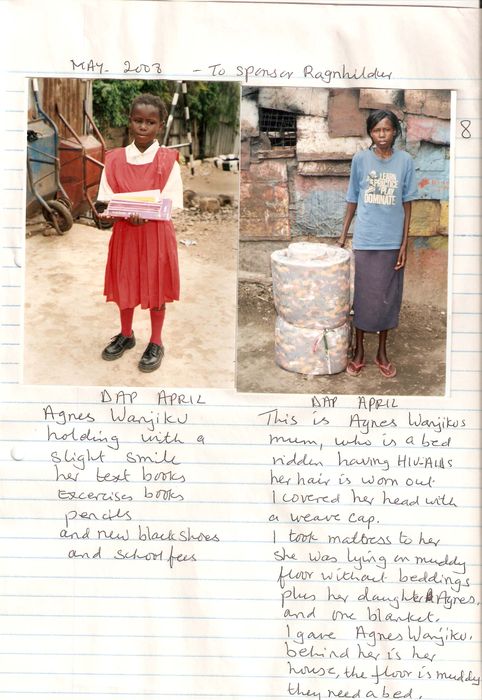 MAY. 2008 - To sponsor Ragnhildur
8
LEARN
PRACTICE
PLAY
DOMINATE
DAP APRIL
Agnes Wanjiku
holding with a
slight smile
her text books
Excercises books
pencils
and new black shoes
and school fees
DAP APRIL
This is Agnes Wanjikus
mum, who is a bed
ridden having HIV-AIDs
her hair is worn out
I covered her head with
a weave cap.
I took mattress to her
she was lying on muddy
floor without beddings
plus her daughter Agnes.
and one blanket.
I gave Agnes Wanjiku.
behind her is her
house, the floor is muddy
they need a bed.